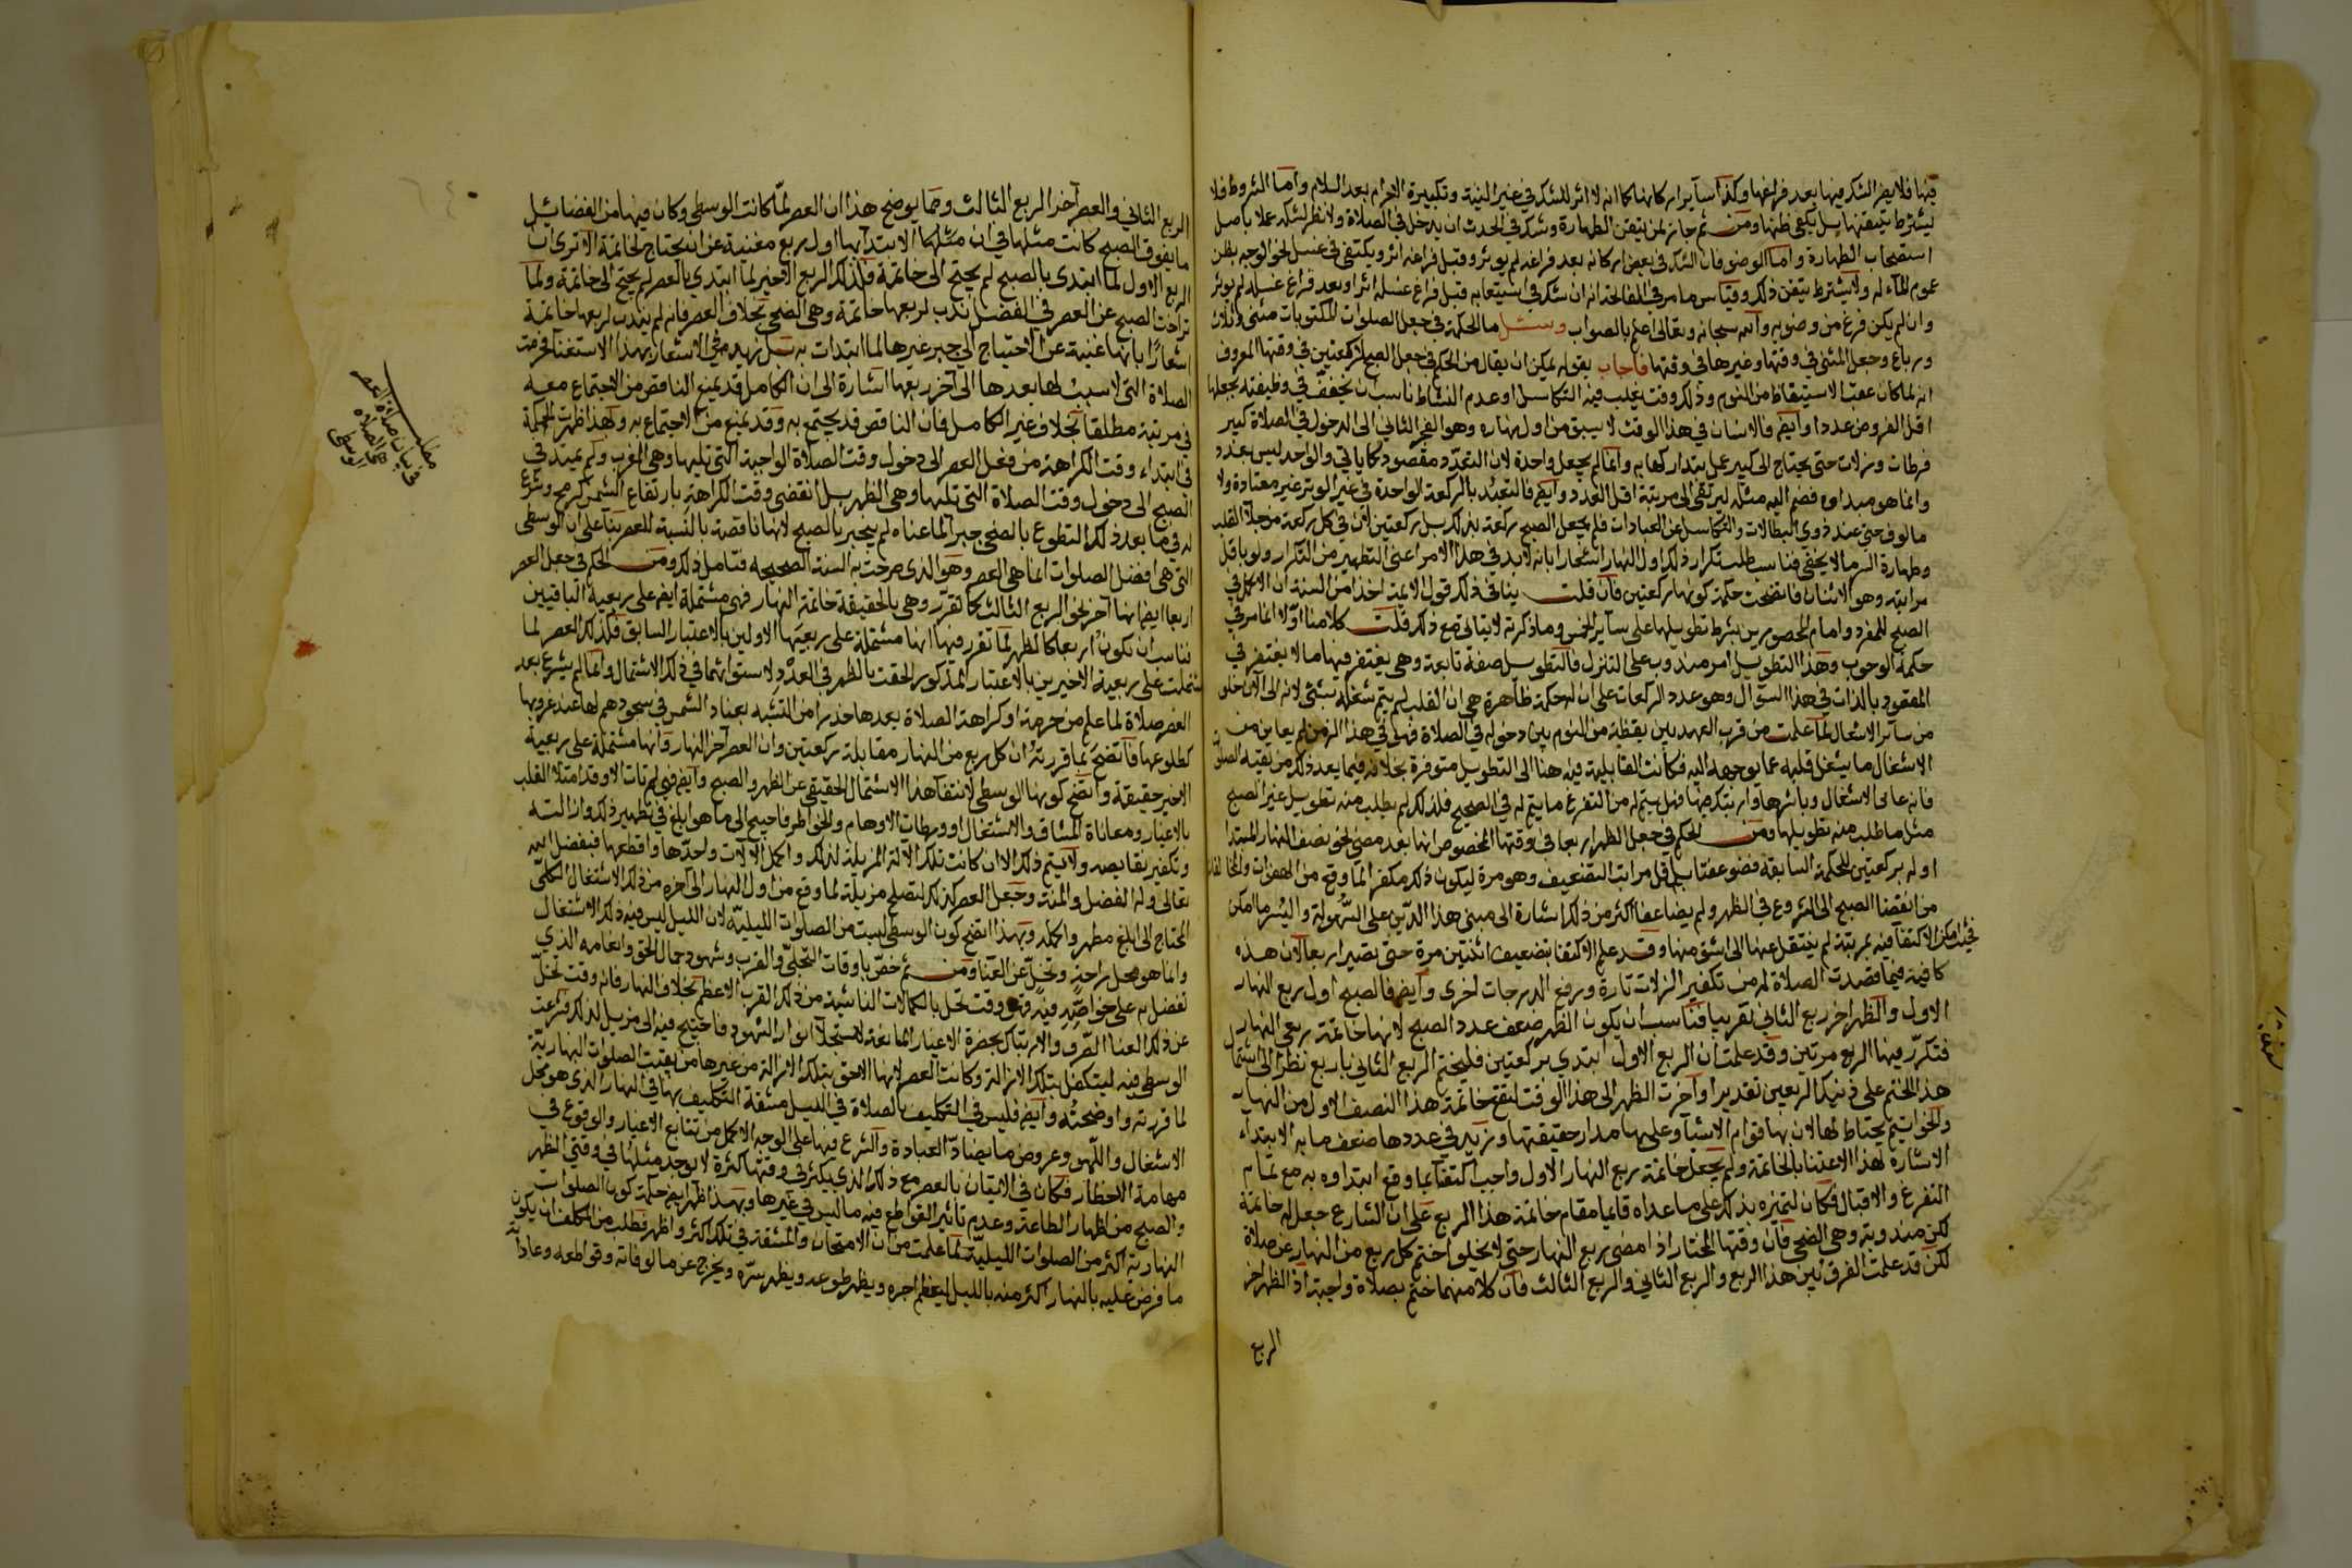 فيها فلا يضر الشك فيها بعد فراغها وكذا سآير اركانها كما انه لا اثر للشك في غير النية وتكبيرة الاحرام بعد السلام واما الشروط فلا
يشترط تيقنها بل يكفي ظنها ومن ثم جاز لمن تيقن الطهارة وشك في الحدث ان يدخل في الصلاة ولا نظر لشكه عملا باصل
استصحاب الطهارة واما الوضو فان الشك في بعض اركانه بعد فراغه لم يوثر وقبل فراغه اثر ويكتفي في غسل نحو الوجه بظن
عموم المآء له ولا يشترط تيقن ذلك وقياس ما مر في الفاتحة انه ان شك في استيعابه قبل فراغ غسله اثر او بعد فراغ غسله لم يوثر
وان لم يكن فرغ من وضوئه والله سبحانه وتعالى اعلم بالصواب وسئل ما الحكمة في جعل الصلوات المكتوبات مثنى وثلاث
ورباع وجعل المثنى في وقتها وغيرها في وقتها فاجاب بقوله يمكن ان يقال من الحكم في جعل الصبح ركعتين في وقتها المعروف
انه لما كان عقب الاستيقاظ من النوم وذلك وقت يغلب فيه التكاسل او عدم النشاط ناسب ان يخفف في وظيفته بجعلها
اقل الفروض عددا وايضا فالانسان في هذا الوقت لا يسبق من اول نهاره وهو الفجر الثاني الى الدخول في الصلاة كبير
فرطات وزلات حتى يحتاج الى كبير عمل يتدارك بها به وانما لم يجعل واحدة لان التعدد مقصود كما ياتي والواحد ليس بعدد
وانما هو مبداوه فضم اليه مثله ليرتقي الى مرتبة اقل العدد وايضا فالتعبد بالركعة الواحدة في غير الوتر غير معتادة ولا
مالوف حتى عند ذوي البطالات والتكاسل عن العبادات فلم يجعل الصبح ركعة بذلك بل ركعتين لان في كل ركعة من جلآ القلب
وطهارة السر ما لا يخفى فناسب طلب تكرار ذلك اول النهار اشعارا بانه لا بد في هذا الامر اعني التطهير من التكرار ولو باقل
مراتبه وهو الاثنان فاتضحت حكمة كونها ركعتين فان قلت ينافي ذلك قول الايمة اخذا من السنة ان الاكمل في
الصبح للمنفرد وامام المحصورين بشرط تطويلها على سآير الخمس وما ذكرته لا يتاتى مع ذلك قلت كلامنا اولا انما مر في
حكمة الوجوب وهذا التطويل امر مندوب على التنزل فالتطويل صفة تابعة وهي يغتفر فيها ما لا يغتفر في
المقصود بالذات في هذا السوال وهو عدد الركعات على ان له حكمة ظاهرة هي ان القلب لم يتم شغله بشئ لانه الى الآن خلو
من سآئر الاشغال لما علمت من قرب العهد بين يقظته من النوم وبين دخوله في الصلاة فهو في هذا الزمن لم يعاين من
الاشغال ما يشغل قلبه عما يوجهه اليه فكانت القابلية فيه هنا الى التطويل متوفرة بخلافه فيما بعد ذلك من بقية الصلوات
فانه عانى الاشغال وباشرها وارتبك فيها فهل يتم له من التفرغ ما يتم له في الصبح فلذلك لم يطلب منه تطويل غير الصبح
مثل ما طلب منه تطويلها ومن الحكم في جعل الظهر اربعا في وقتها المخصوص انها بعد مضي نحو نصف النهار المبتدا
اوله بركعتين للحكمة السابقة فضوعفتا باقل مراتب التضعيف وهو مرة ليكون ذلك مكفرا لما وقع من الهفوات والمخالفات
من انقضا الصبح الى الشروع في الظهر ولم يضاعفا اكثر من ذلك اشارة الى مبنى هذا الدين على السهولة واليسر ما امكن
فحيث امكن الاكتفآ فيه بمرتبة لم ينتقل عنها الى اشق منها وقد علم الاكتفا بتضعيف اثنتين مرة حتى تصير اربعا لان هذه
كافية فيما قصدت الصلاة له من تكفير الزلات تارة ورفع الدرجات اخرى وايضا فالصبح اول ربع النهار
الاول والظهر اخر ربع الثاني تقريبا فناسب ان يكون الظهر ضعف عدد الصبح لانها خاتمة ربعي النهار
فتكرر فيها الربع مرتين وقد علمت ان الربع الاول ابتدي بركعتين فليختم الربع الثاني باربع نظرا الى اشتمال
هذا الختم على ذينك الربعين تقديرا واخرت الظهر الى هذا الوقت لتقع خاتمة هذا النصف الاول من النهار
والخواتيم يحتاط لها لان بها قوام الاشيآ وعليها مدار حقيقتها وزيد في عددها ضعف ما به الابتداء
الاشارة لهذا الاعتنا بالخاتمة ولم يجعل خاتمة ربع النهار الاول واجبا اكتفآ بما وقع ابتداوه به مع تمام
التفرغ والاقبال فكان لتميزه بذلك على ما عداه قايما مقام خاتمة هذا الربع على ان الشارع جعل له خاتمة
لكن مندوبة وهي الضحى فان وقتها المختار اذا مضى ربع النهار حتى لا يخلو ختم كل ربع من النهار عن صلاة
لكن قد علمت الفرق بين هذا الربع والربع الثاني والربع الثالث فان كلا منهما ختم بصلاة واجبة اذ الظهر اخر
الربع
الربع الثاني والعصر آخر الربع الثالث ومما يوضح هذا ان العصر لما كانت الوسطى وكان فيها من الفضائل
ما يفوق الصبح كانت مثلها في ان مثلها الابتدآ بها اول ربع مغنية عن انه يحتاج لخاتمة الا ترى ان
الربع الاول لما ابتدى بالصبح لم يحتج الى خاتمة فكذلك الربع الاخير لما ابتدي بالعصر لم يحتج الى خاتمة ولما
تراخت الصبح عن العصر في الفضل ندب لربعها خاتمة وهي الضحى بخلاف العصر فانه لم يندب لربعها خاتمة
اشعارا بانها غنية عن الاحتياج الى جبر غيرها لما ابتدات به بل زيد في الاشعار بهذا الاستغنا فحرمت
الصلاة التي لا سبب لها بعدها الى آخر ربعها اشارة الى ان الكامل قد يمنع الناقص من الاجتماع معه
في مرتبة مطلقا بخلاف غير الكامل فان الناقص قد يجتمع به وقد يمنع من الاجتماع به ولهذا ظهرت الحكمة
في ابتداء وقت الكراهة من فعل العصر الى دخول وقت الصلاة الواجبة التي تليها وهي المغرب ولم يمتد في
الصبح الى دخول وقت الصلاة التي تليها وهي الظهر بل انقضى وقت الكراهة بارتفاع الشمس كرمح وشرع
له في ما بعد ذلك التطوع بالضحى جبرا لما عناه لم ينجبر بالصبح لانها ناقصة بالنسبة للعصر بنآء على ان الوسطى
التي هي افضل الصلوات انما هي العصر وهو الذي صرحت به السنة الصحيحه فتامل ذلك ومن الحكم في جعل العصر
اربعا ايضا انها آخر نحو الربع الثالث كما تقرر وهي بالحقيقة خاتمة النهار فهي مشتملة ايضا على ربعية الباقيين
فناسب ان تكون اربعا كالظهر لما تقرر فيها انها مشتملة على ربعيها الاولين بالاعتبار السابق فكذلك العصر لما
اشتملت على ربعية الاخيرين بالاعتبار المذكور الحقت بالظهر في العدد لاستوائهما في ذلك الاشتمال وانما لم يشرع بعد
العصر صلاة لما علم من حرمة او كراهة الصلاة بعدها حذرا من التشبه بعباد الشمس في سجودهم لها عند غروبها
كطلوعها فاتضح بما قررته ان كل ربع من النهار مقابلة ركعتين وان العصر آخر النهار وانها مشتملة على ربعية
الاخير حقيقة واتضح كونها الوسطى لانتفآ هذا الاشتمال الحقيقي عن الظهر والصبح وايضا فهي لم تات الا وقد امتلا القلب
بالاغيار ومعاناة المشاق والاشتغال او ورطات الاوهام والخواطر فاحتيج الى ما هو ابلغ في تطهير ذلك وازالته
وتكفير نقايصه ولا يتم ذلك الا ان كانت تلك الآلة المزيلة لذلك اكمل الآلات واحدها واقطعها فبفضل الله
تعالى وله الفضل والمنة وجعل العصر كذلك لتصلح مزيلة لما وقع من اول النهار الى آخره من ذلك الاشتغال الكلي
المحتاج الى ابلغ مطهر واكمله وبهذا اتضح كون الوسطى ليست من الصلوات الليليه لان الليل ليس فيه ذلك الاشتغال
وانما هو محل راحة وتخل عن العنا ومن ثم خص باوقات التجلي والقرب وشهود جمال الحق وانعامه الذي
تفضل به على خواصه فيه فهو وقت تحل بالكمالات الناشية من ذلك القرب الاعظم بخلاف النهار فانه وقت تخل
عن ذلك العنا الصرف والارتباك بحضرة الاغيار المانعة لاستجلآ انوار الشهود فاحتيج فيه الى مزيل لذلك فشرعت
الوسطى فيه ليتكفل بتلك الازالة وكانت العصر لانها الاحق بتلك الازالة من غيرها من بقيت الصلوات النهارية
لما قررته واوضحته وايضا فليس في التكليف بالصلاة في الليل مشقة التكليف بها في النهار الذي هو محل
الاشغال واللهو وعروض ما يضاد العبادة والشرع فيها على الوجه الاكمل من تتابع الاغيار والوقوع في
مهامة الاخطار فكان في الاتيان بالعصر مع ذلك الذي يكثر في وقتها كثرة لا يوجد مثلها في وقتي الظهر
والصبح من اظهار الطاعة وعدم تاثير القواطع فيه ما ليس في غيرها وبهذا ظهر ايضا حكمة كون الصلوات
النهارية اكثر من الصلوات الليلية لما علمت من ان الامتحان والمشقة في تلك اكثر واظهر فطلب من المكلف ان يكون
ما فرض عليه بالنهار اكثر منه بالليل ليعظم اجره ويظهر طوعه ويظهر سره ويخرج عن مالوفاته وقواطعه وعاداته
مطلب
في بيان صلاة العصر
هي الصلاة
الوسطى